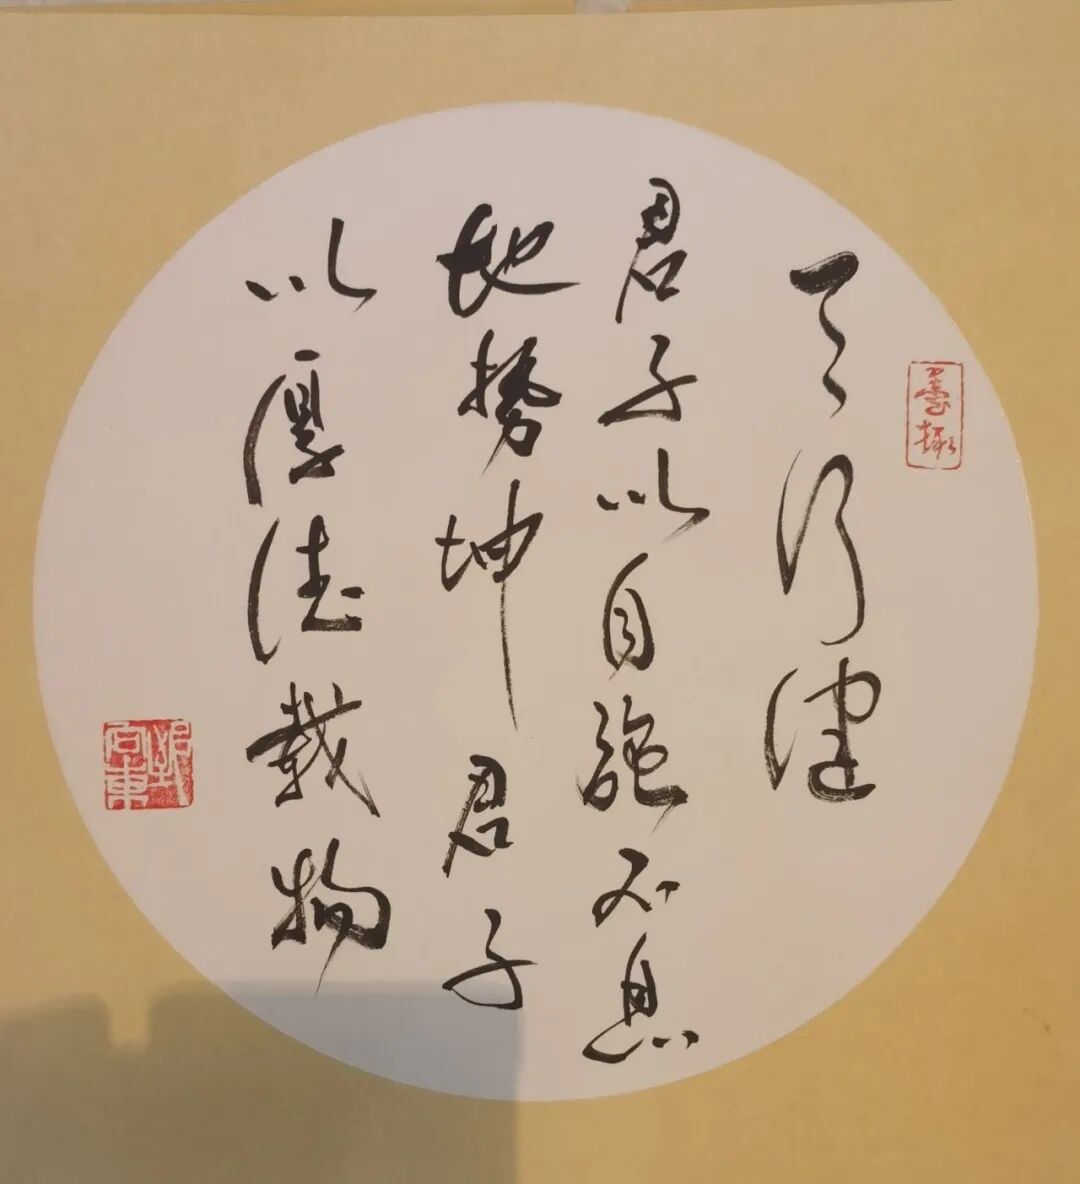 天行健
君子以自強不息
地势坤君子
以厚德载物
墨趣